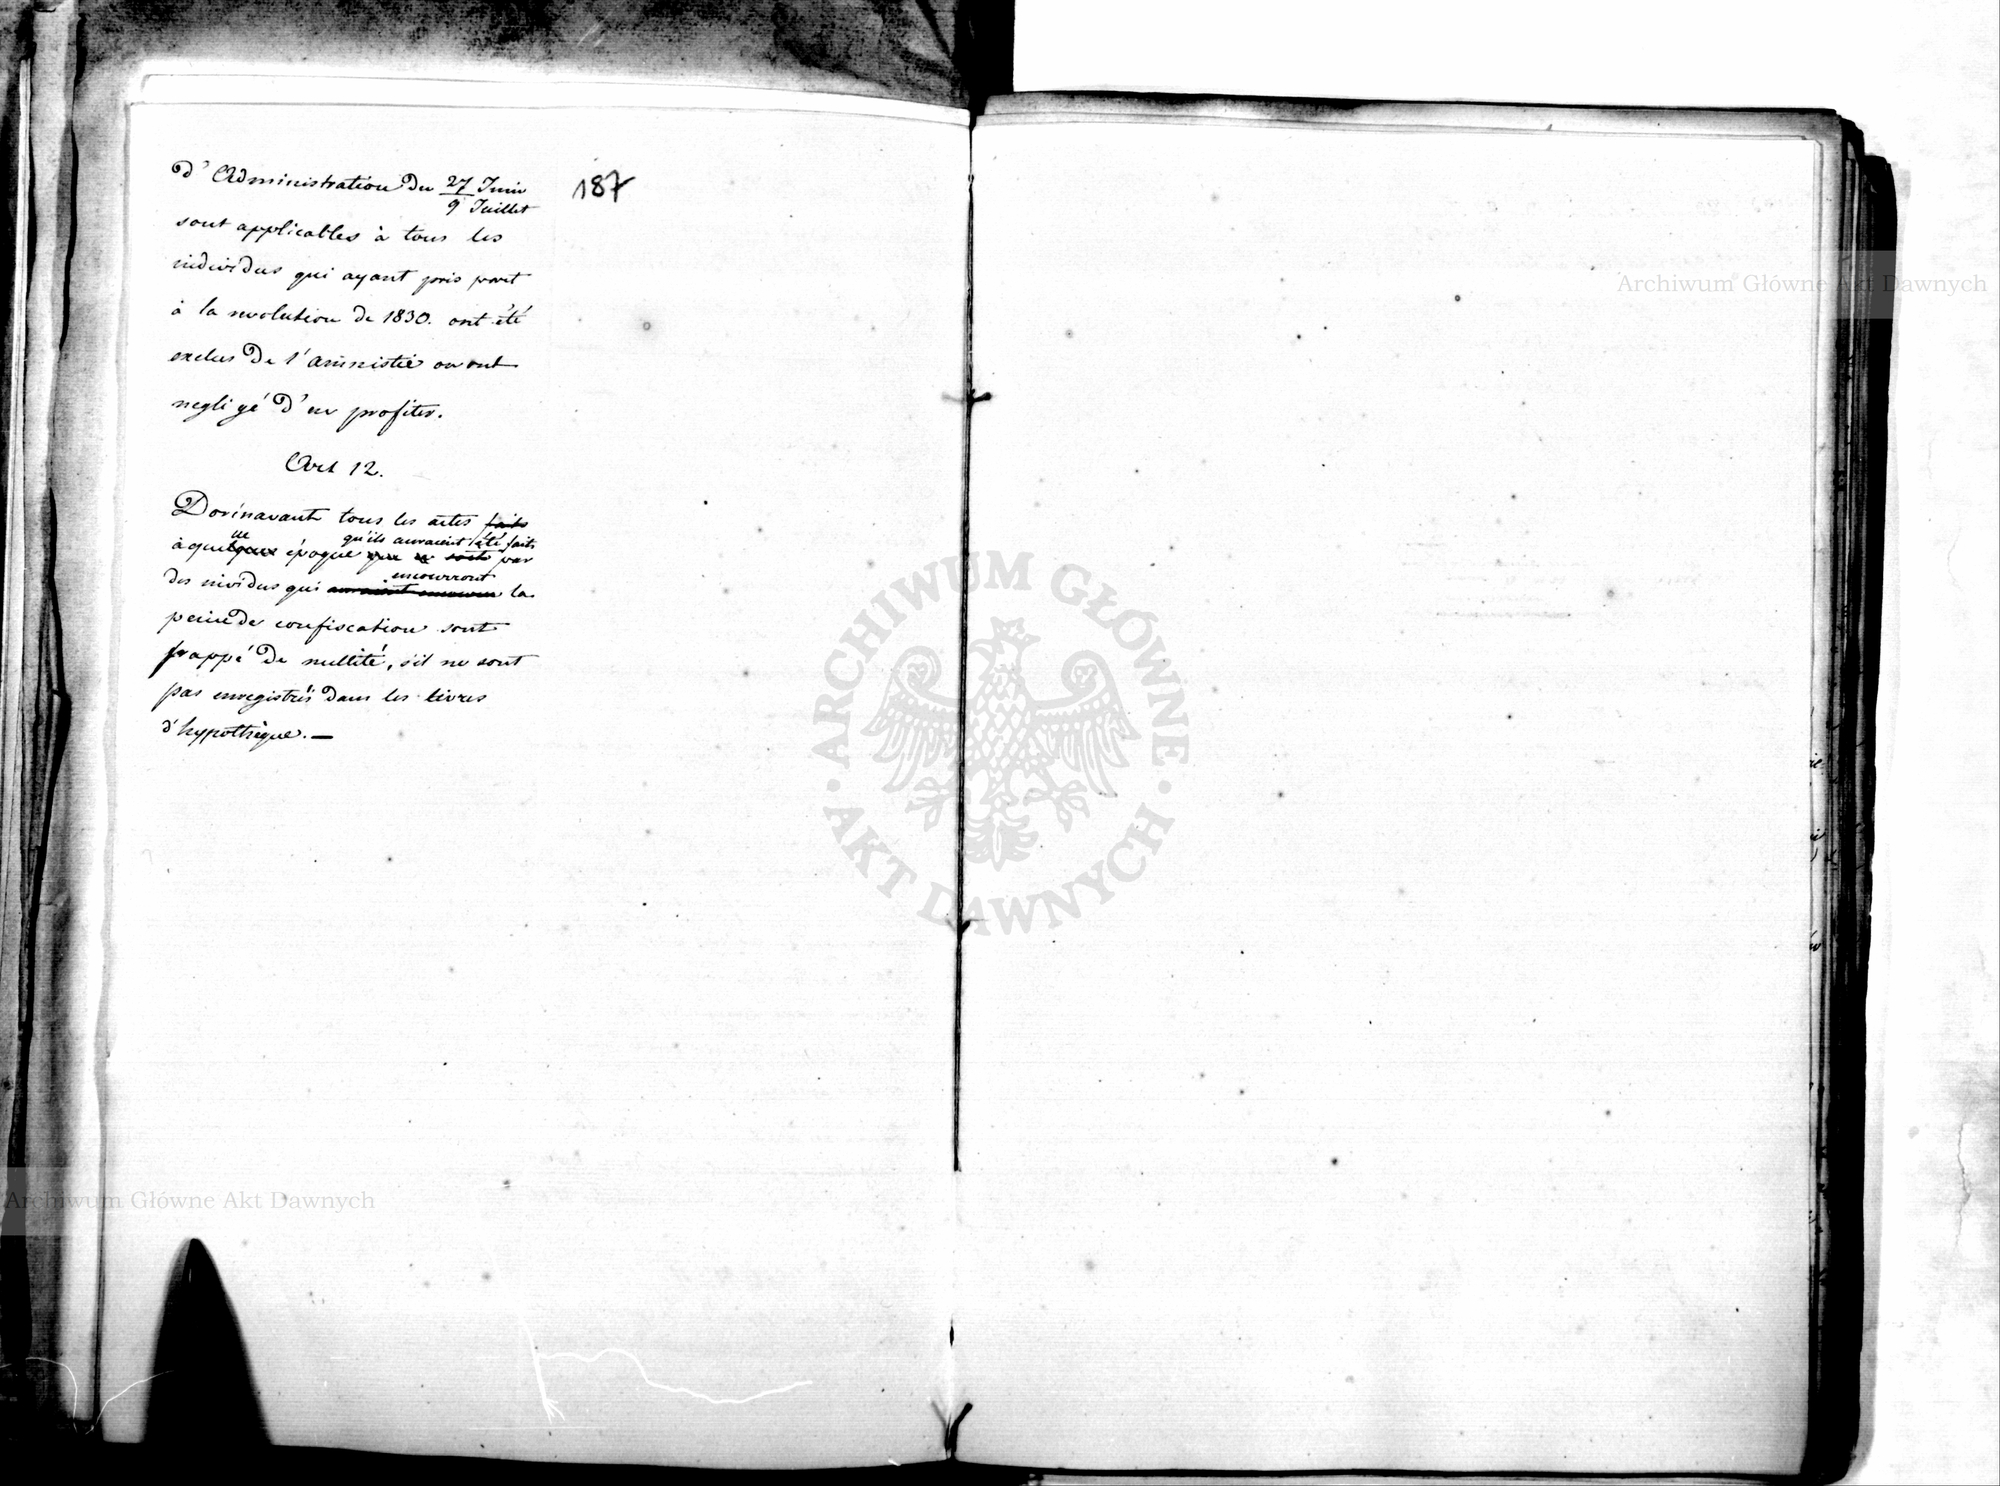 187
d'Administration du 27 Juin
9 Juillet
sont applicables à tous les
individus qui ayant pris part
à la revolution de 1830. ont été
exclus de l'amnistie ou ont
negligé d'en profiter.
Art 12.
Dorénavant tous les actes faits
lle qu'ils auraient été faits
à quelque époque que ce soit par
encourront
des inividus qui auraient encouru la
peine de confiscation sont
frappé de nullité, s'il ne sont
pas enregistrés dans les livres
d'hypothèque. —
ARCHIWUM GŁÓWNE
AKT DAWNYCH
Archiwum Główne Akt Dawnych
Archiwum Główne Akt Dawnych